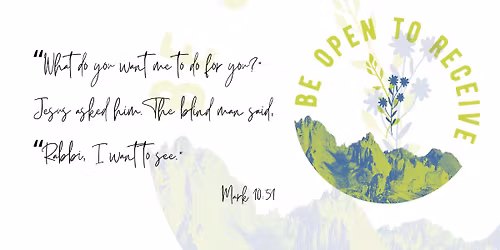 “What do you want me to do for you?”
Jesus asked him. The blind man said,
“Rabbi, I want to see.”
Mark 10:51
BE OPEN TO RECEIVE